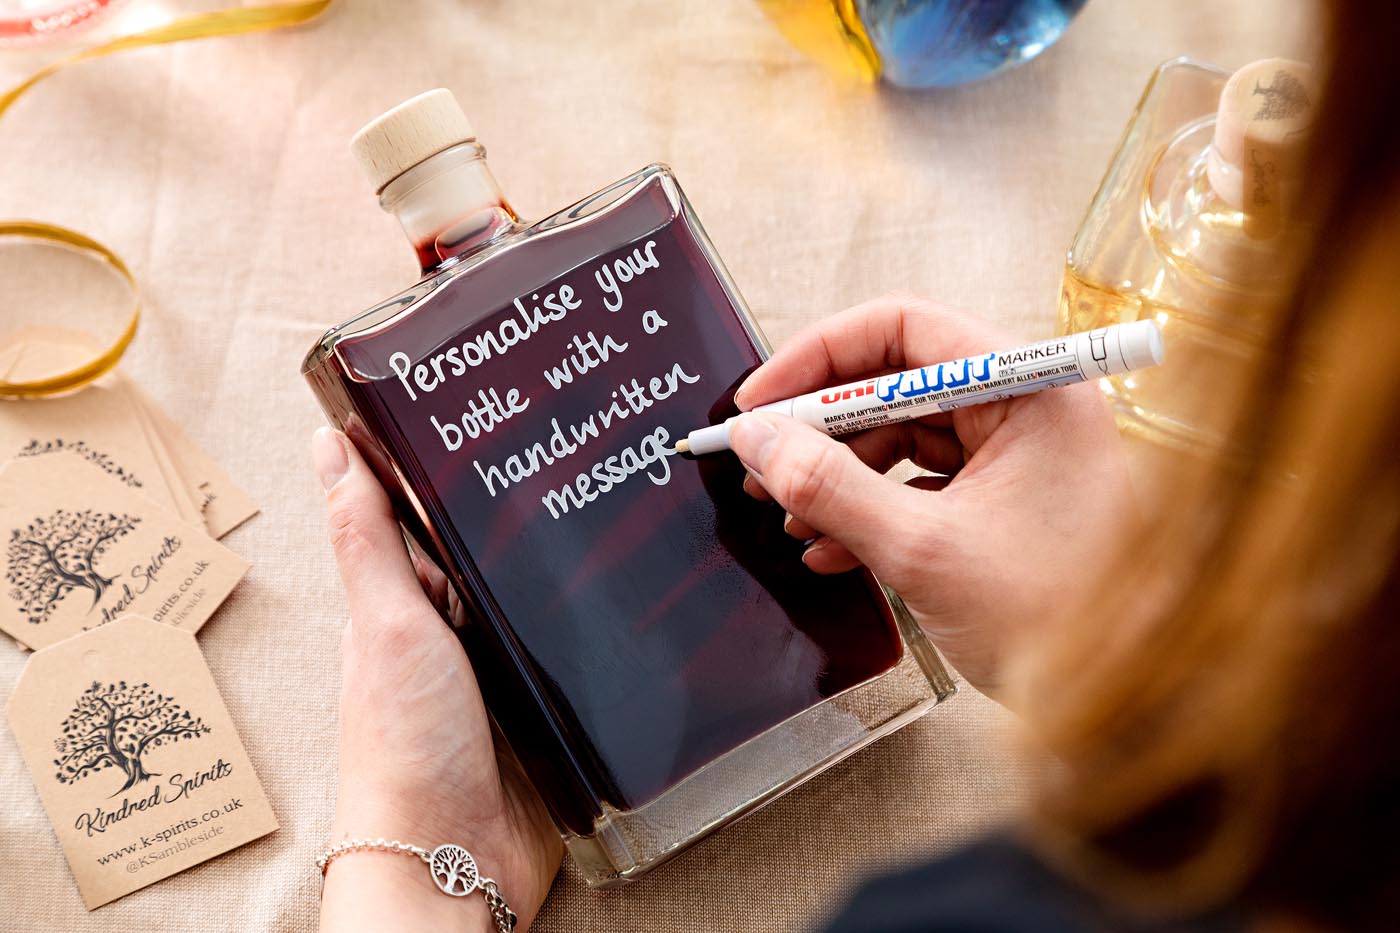 Personalise your
bottle with a
handwritten
message
uni PAINT MARKER
MARKS ON ANYTHING/MARQUE SUR TOUTES SURFACES/MARKIERT ALLES/MARCA TODO
Kindred Spirits
www.k-spirits.co.uk
@KSambleside
dred Spirits
pirits.co.uk
leside